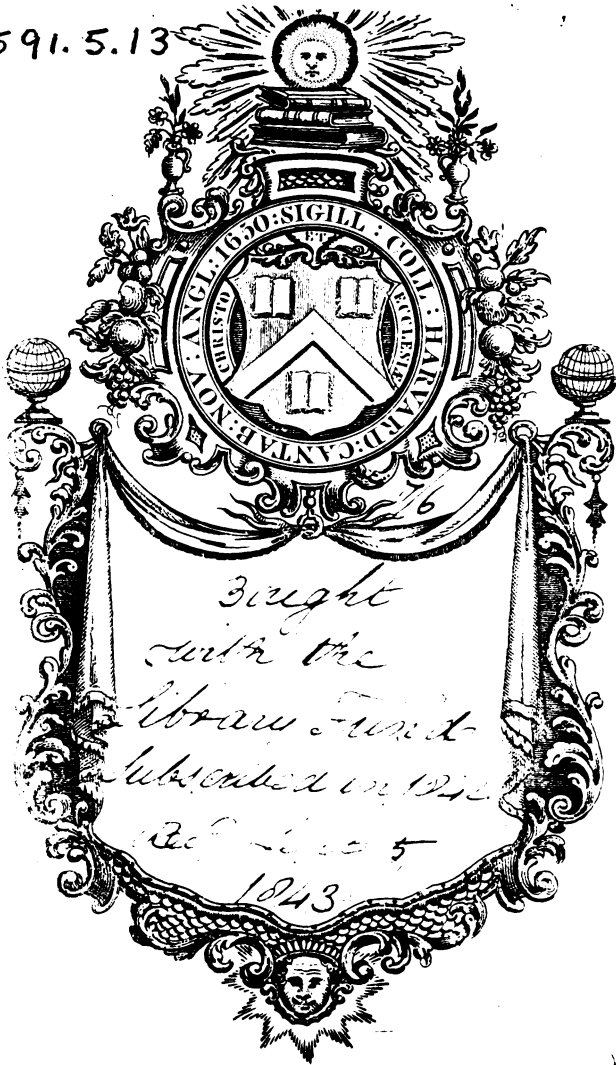 591.5.13
SIGILL : COLL : HARVARD : CANTAB : NOV : ANGL : 1650 :
ET
CHRISTO
ECCLESIÆ
Bought
with the
Library Fund
Subscribed in 1842
5
1843